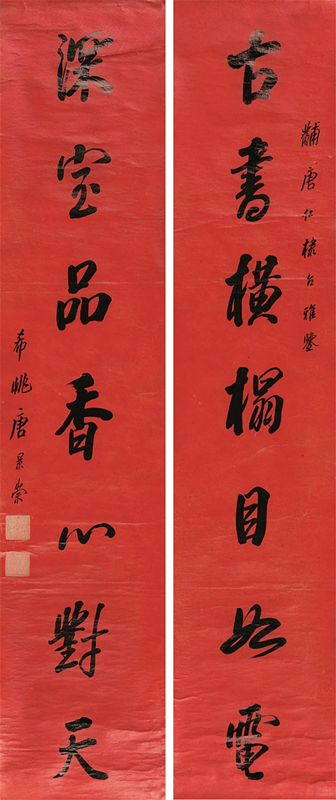 黼唐仁棣台雅鑒
古書橫榻目如電
深室品香心對天
希姚唐景崇